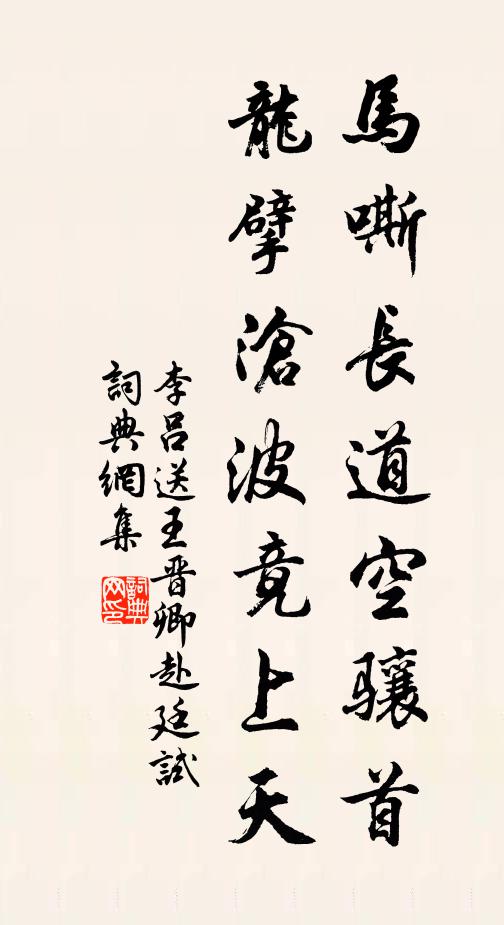 馬嘶長道空驤首
龍擘滄波竟上天
李呂送王晋卿赴廷試
詞典網集
詞典網印